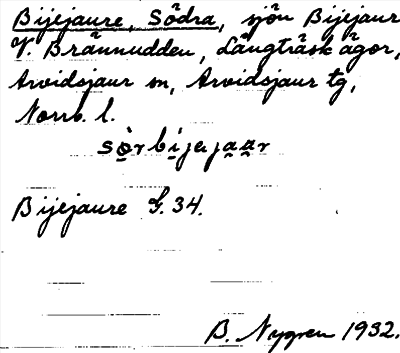 Bijejaure, Södra, sjön Bijejaur
V. Brännudden, Långträsk ägor,
Arvidsjaur sn, Arvidsjaur tg,
Norrb. l.
sò̱rbi̱jeja̱a̱r
Bijejaure G. 34.
B. Nygren 1932.